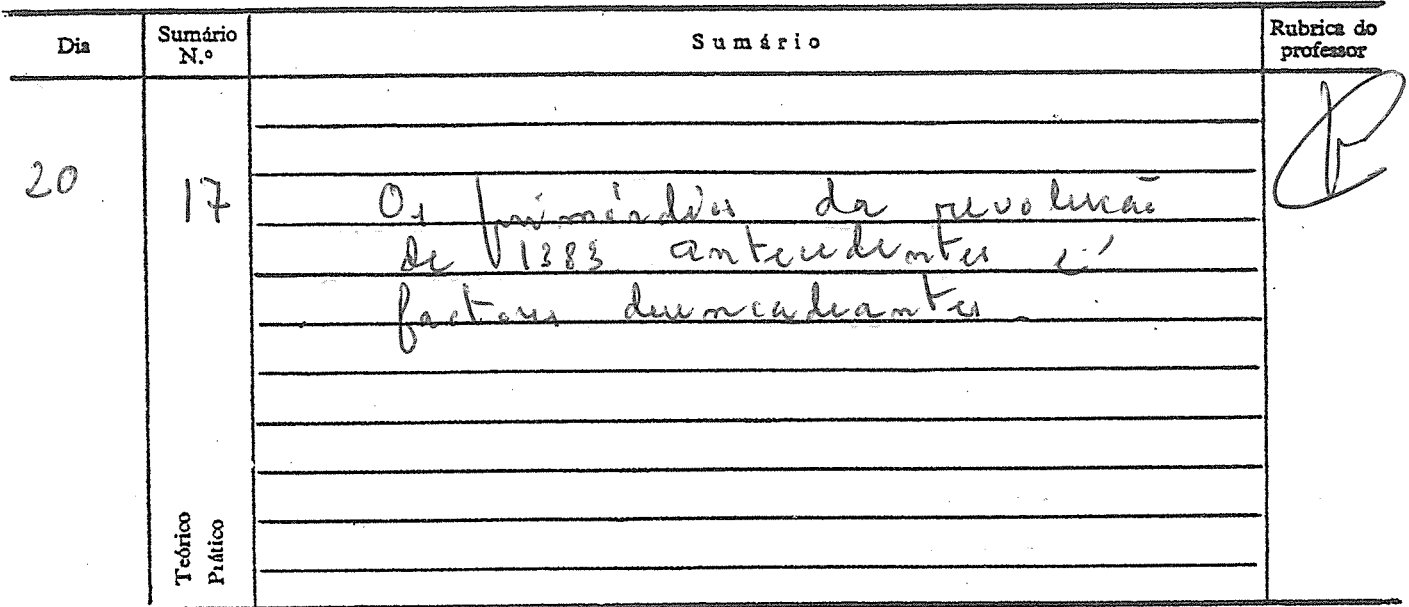 Dia
Sumário N.º
Sumário
Rubrica do professor
20
17
Os primórdios da revolução
de 1383 antecedentes e
factores desencadeantes.
Teórico
Prático